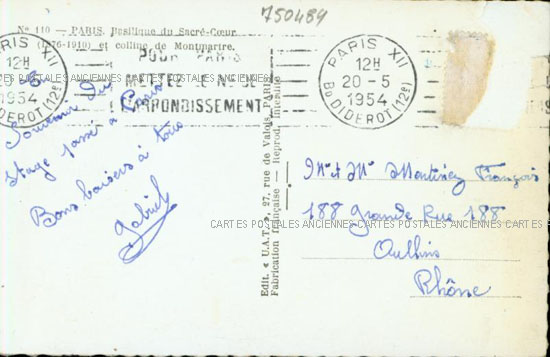 750489
Nº 110 — PARIS. Basilique du Sacré-Cœur
(1876-1910) et colline de Montmartre.
PARIS XII
12H
20-5
1954
Bd DIDEROT (12e)
POUR PARIS
METTEZ LE Nº DE
L'ARRONDISSEMENT
PARIS XII
12H
20-5
1954
Bd DIDEROT (12e)
CARTES POSTALES ANCIENNES CARTES POSTALES ANCIENNES CARTES POSTALES ANCIENNES
Souvenir du
stage passé à Paris
Bons baisers à tous
Gabriel
Edit. « U.A.T. », 27, rue de Valois, PARIS
Fabrication française — Reprod. interdite
Mr & Me François
188 Grande Rue 188
CARTES POSTALES ANCIENNES CARTES POSTALES ANCIENNES CARTES
Oullins
Rhône